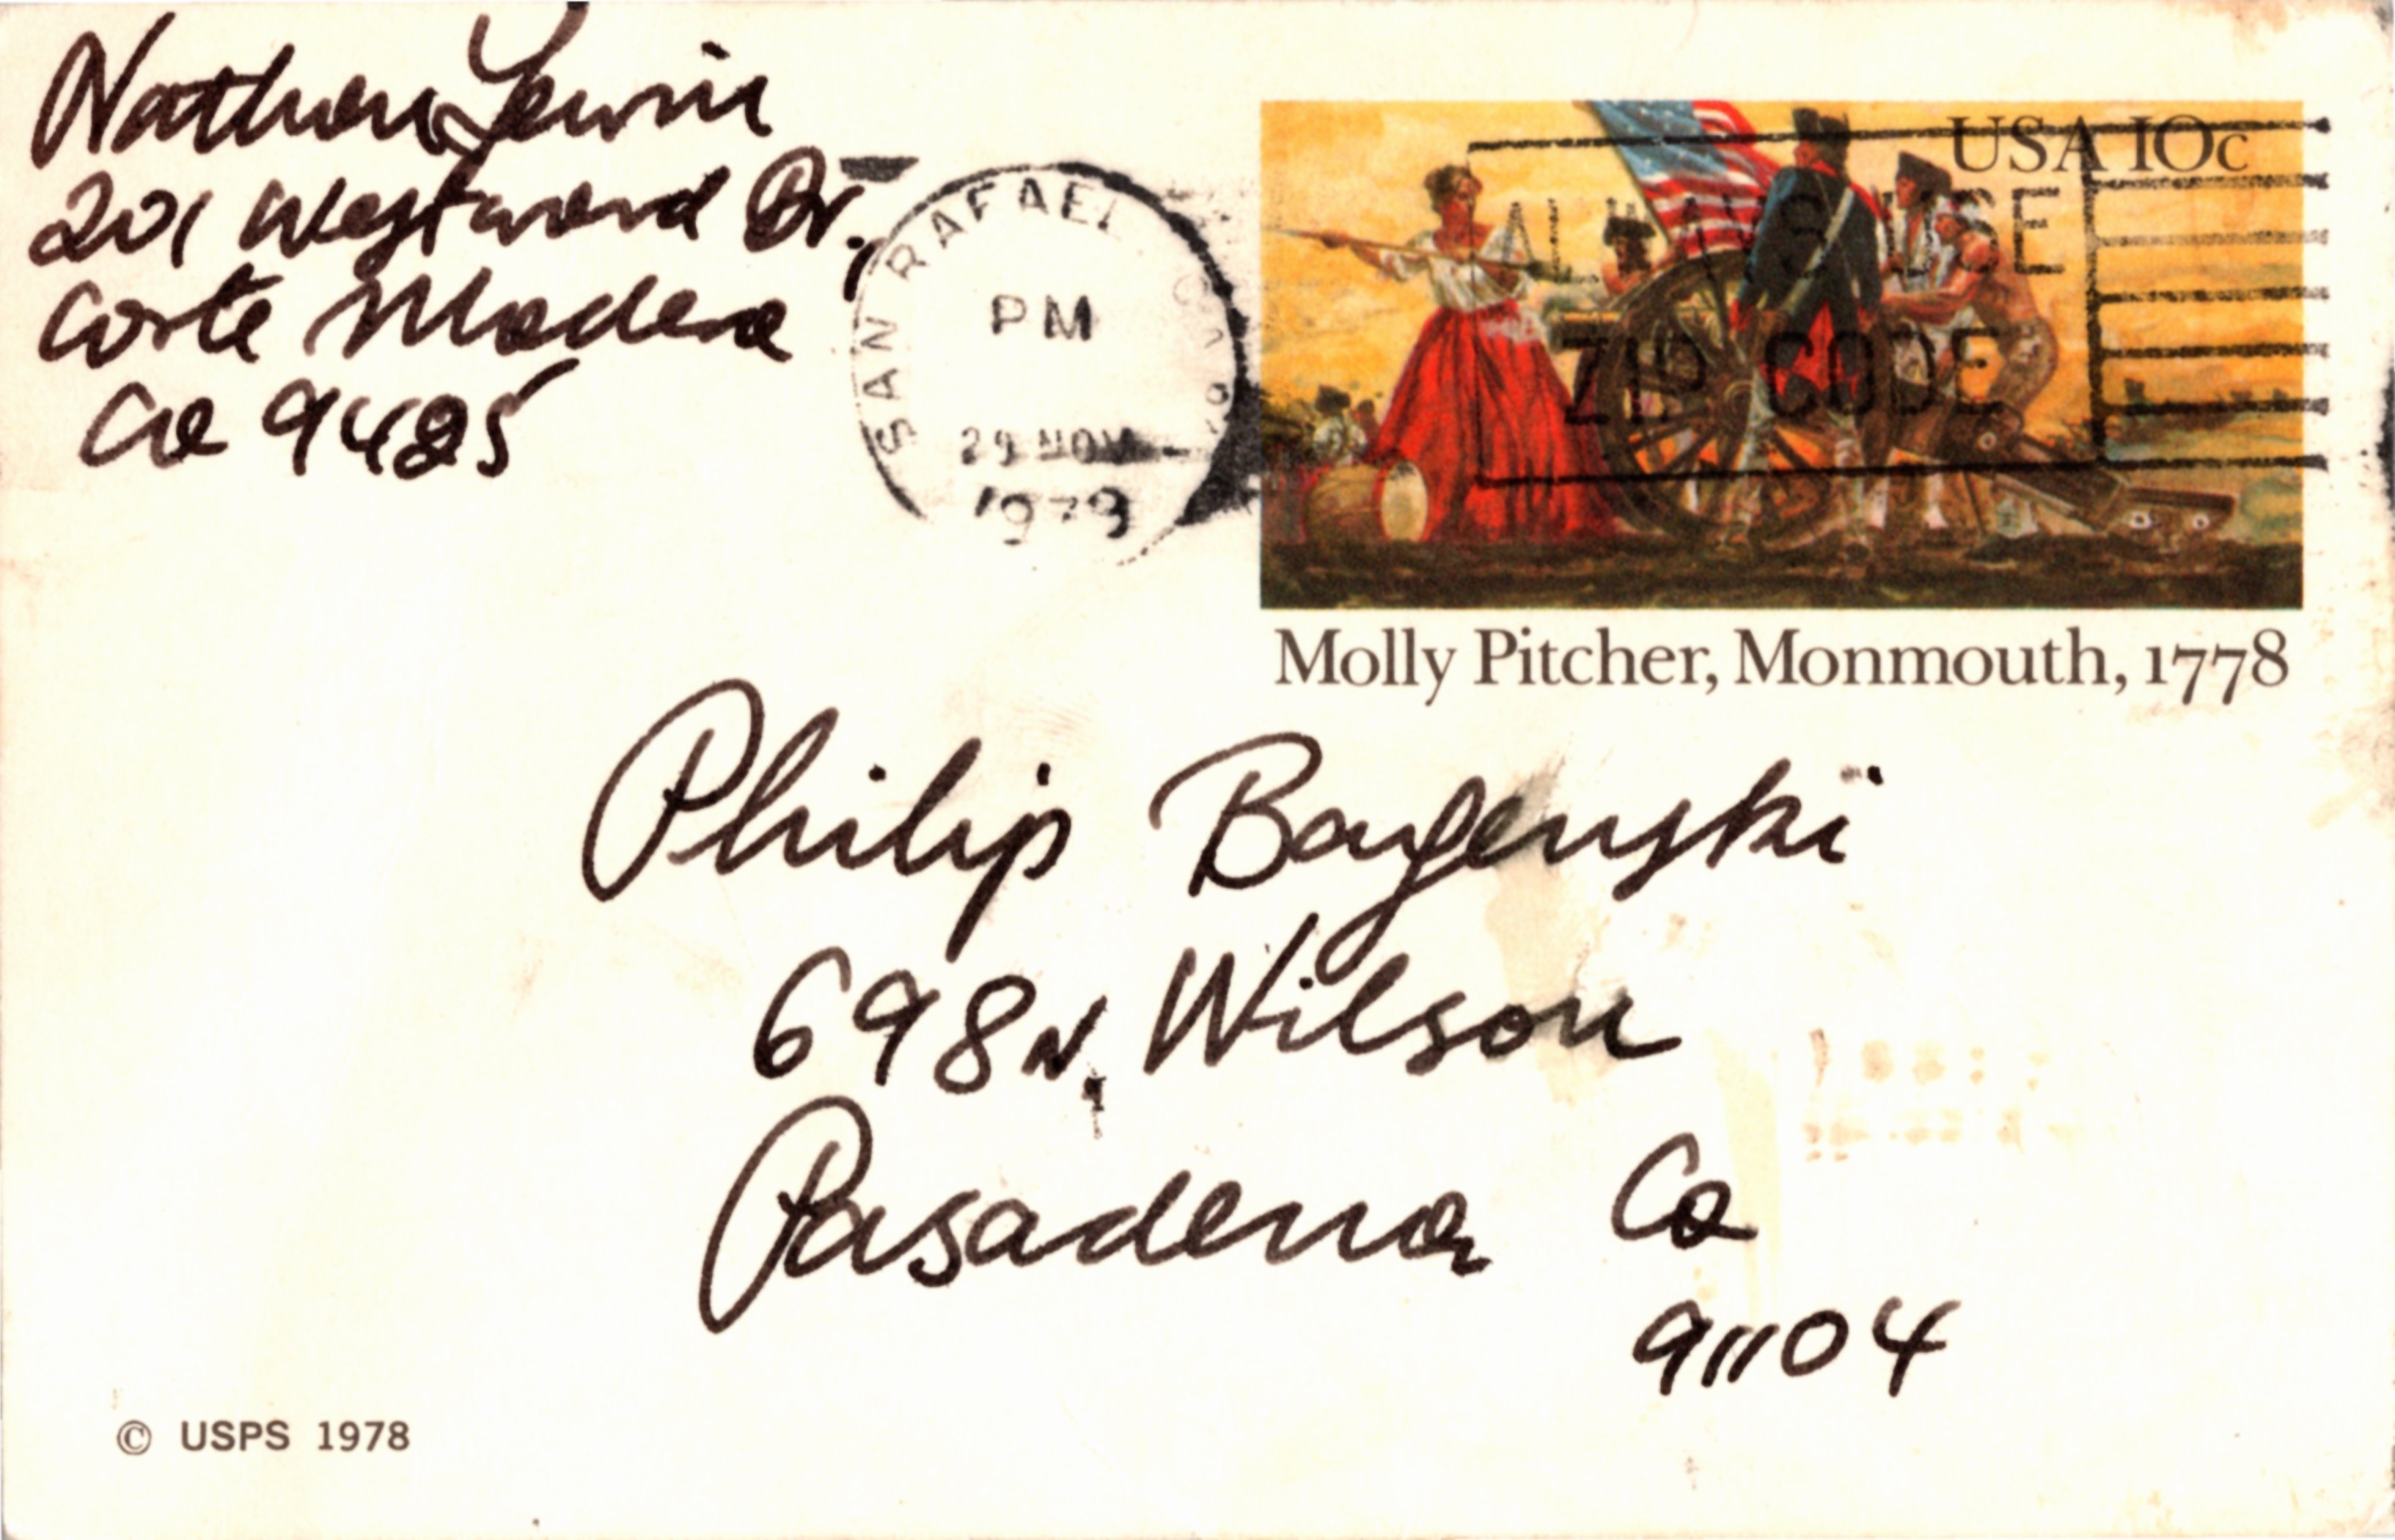 Nathan Lewin
201 Westward Dr.,
Corte Madera
Ca 9425
SAN RAFAEL CA
PM
29 NOV
1978
USA 10c
ALWAYS USE
ZIP CODE
Molly Pitcher, Monmouth, 1778
Philip
698 N. Wilson
Pasadena Ca
91104
© USPS 1978